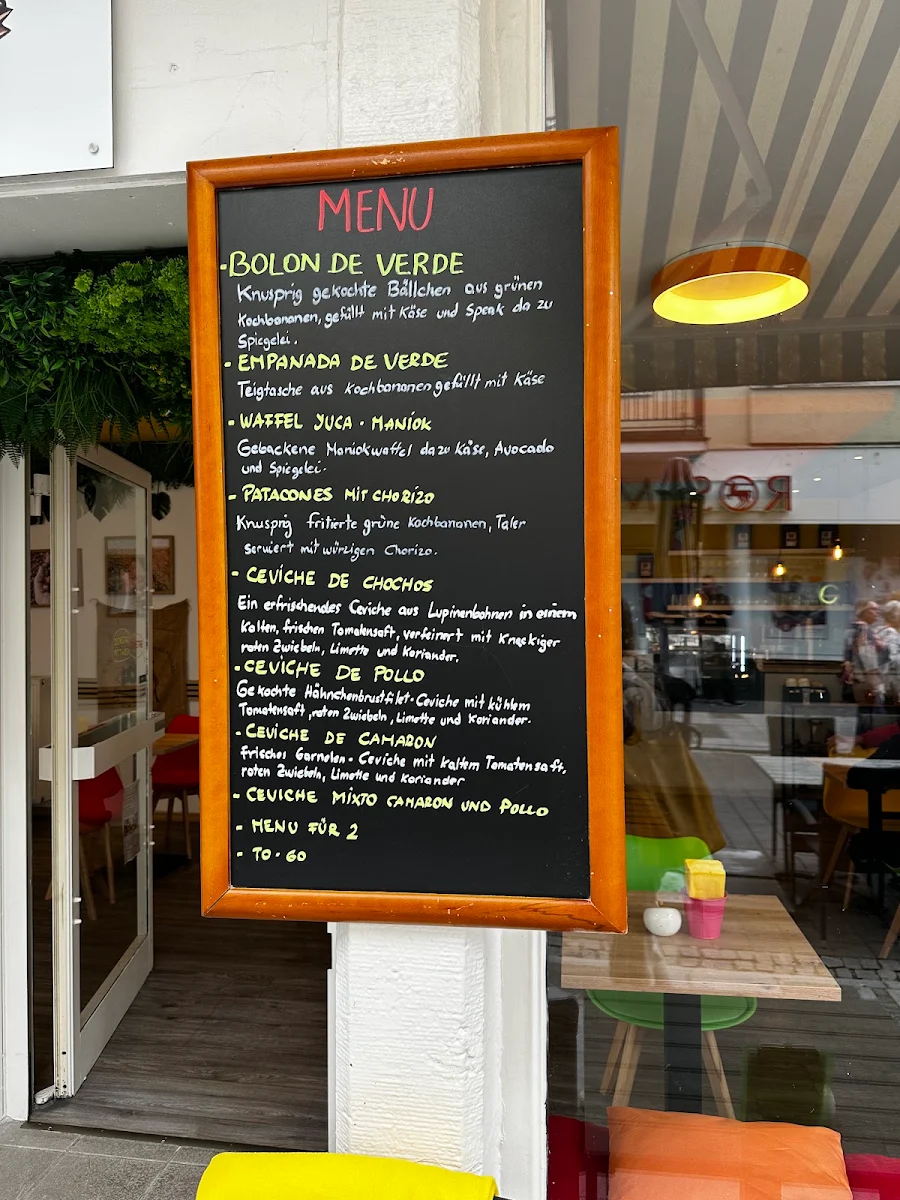 MENU
- BOLON DE VERDE
Knusprig gekochte Bällchen aus grünen
Kochbananen, gefüllt mit Käse und Speak da zu
Spiegelei.
- EMPANADA DE VERDE
Teigtasche aus Kochbananen gefüllt mit Käse
- WAFFEL YUCA · MANIOK
Gebackene Maniokwaffel dazu Käse, Avocado
und Spiegelei.
- PATACONES MIT CHORIZO
Knusprig fritierte grüne Kochbananen, Taler
serviert mit würzigen Chorizo.
- CEVICHE DE CHOCHOS
Ein erfrischendes Ceviche aus Lupinenbohnen in einem
Kalten, frischen Tomatensaft, verfeinert mit Knackiger
roten Zwiebeln, Limette und Koriander.
- CEVICHE DE POLLO
Gekochte Hähnchenbrustfilet-Ceviche mit kühlem
Tomatensaft, roten Zwiebeln, Limette und Koriander.
- CEVICHE DE CAMARON
frisches Garnelen-Ceviche mit kaltem Tomatensaft,
roten Zwiebeln, Limette und Koriander
- CEVICHE MIXTO CAMARON UND POLLO
- MENU FÜR 2
- TO-GO